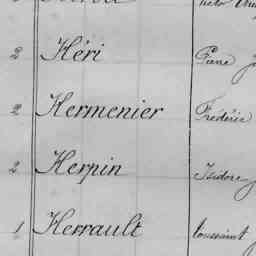 2 Héri Pierre
2 Hermenier Frédéric
2 Herpin Isidore
1 Herrault Toussaint